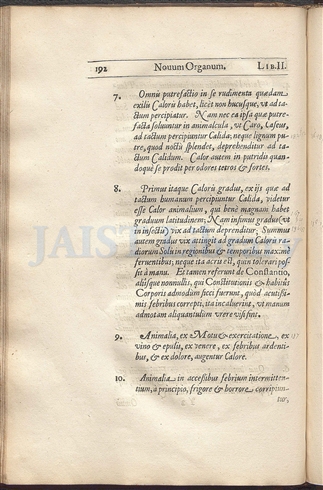 192 Novum Organum. LIB. II.
7. Omnis putrefactio in se rudimenta quædam
exilis Caloris habet, licèt non hucusque, vt ad ta-
ctum percipiatur. Nam nec ea ipsa quæ putre-
facta soluuntur in animalcula, vt Caro, Caseus,
ad tactum percipiuntur Calida; neque lignum pu-
tre, quod noctù splendet, deprehenditur ad ta-
ctum Calidum. Calor autem in putridis quan-
doquè se prodit per odores tetros & fortes.
8. Primus itaque Caloris gradus, ex ijs quæ ad
tactum humanum percipiuntur Calida, videtur
esse Calor animalium, qui benè magnam habet
graduum latitudinem; Nam infimus gradus (vt
in insectis) vix ad tactum deprehenditur; Summus
autem gradus vix attingit ad gradum Caloris ra-
diorum Solis in regionibus & temporibus maximè
feruentibus; neque ita acris est, quin tolerari pos-
sit à manu. Et tamen referunt de Constantio,
alijsque nonnullis, qui Constitutionis & habitûs
Corporis admodum sicci fuerunt, quòd acutissi-
mis febribus correpti, ita incaluerint, vt manum
admotam aliquantulùm vrere visi sint.
9. Animalia, ex Motu & exercitatione, ex
vino & epulis, ex venere, ex febribus ardenti-
bus, & ex dolore, augentur Calore.
10. Animalia in accessibus febrium intermitten-
tium, à principio, frigore & horrore corripiun-
tur,
JAIST